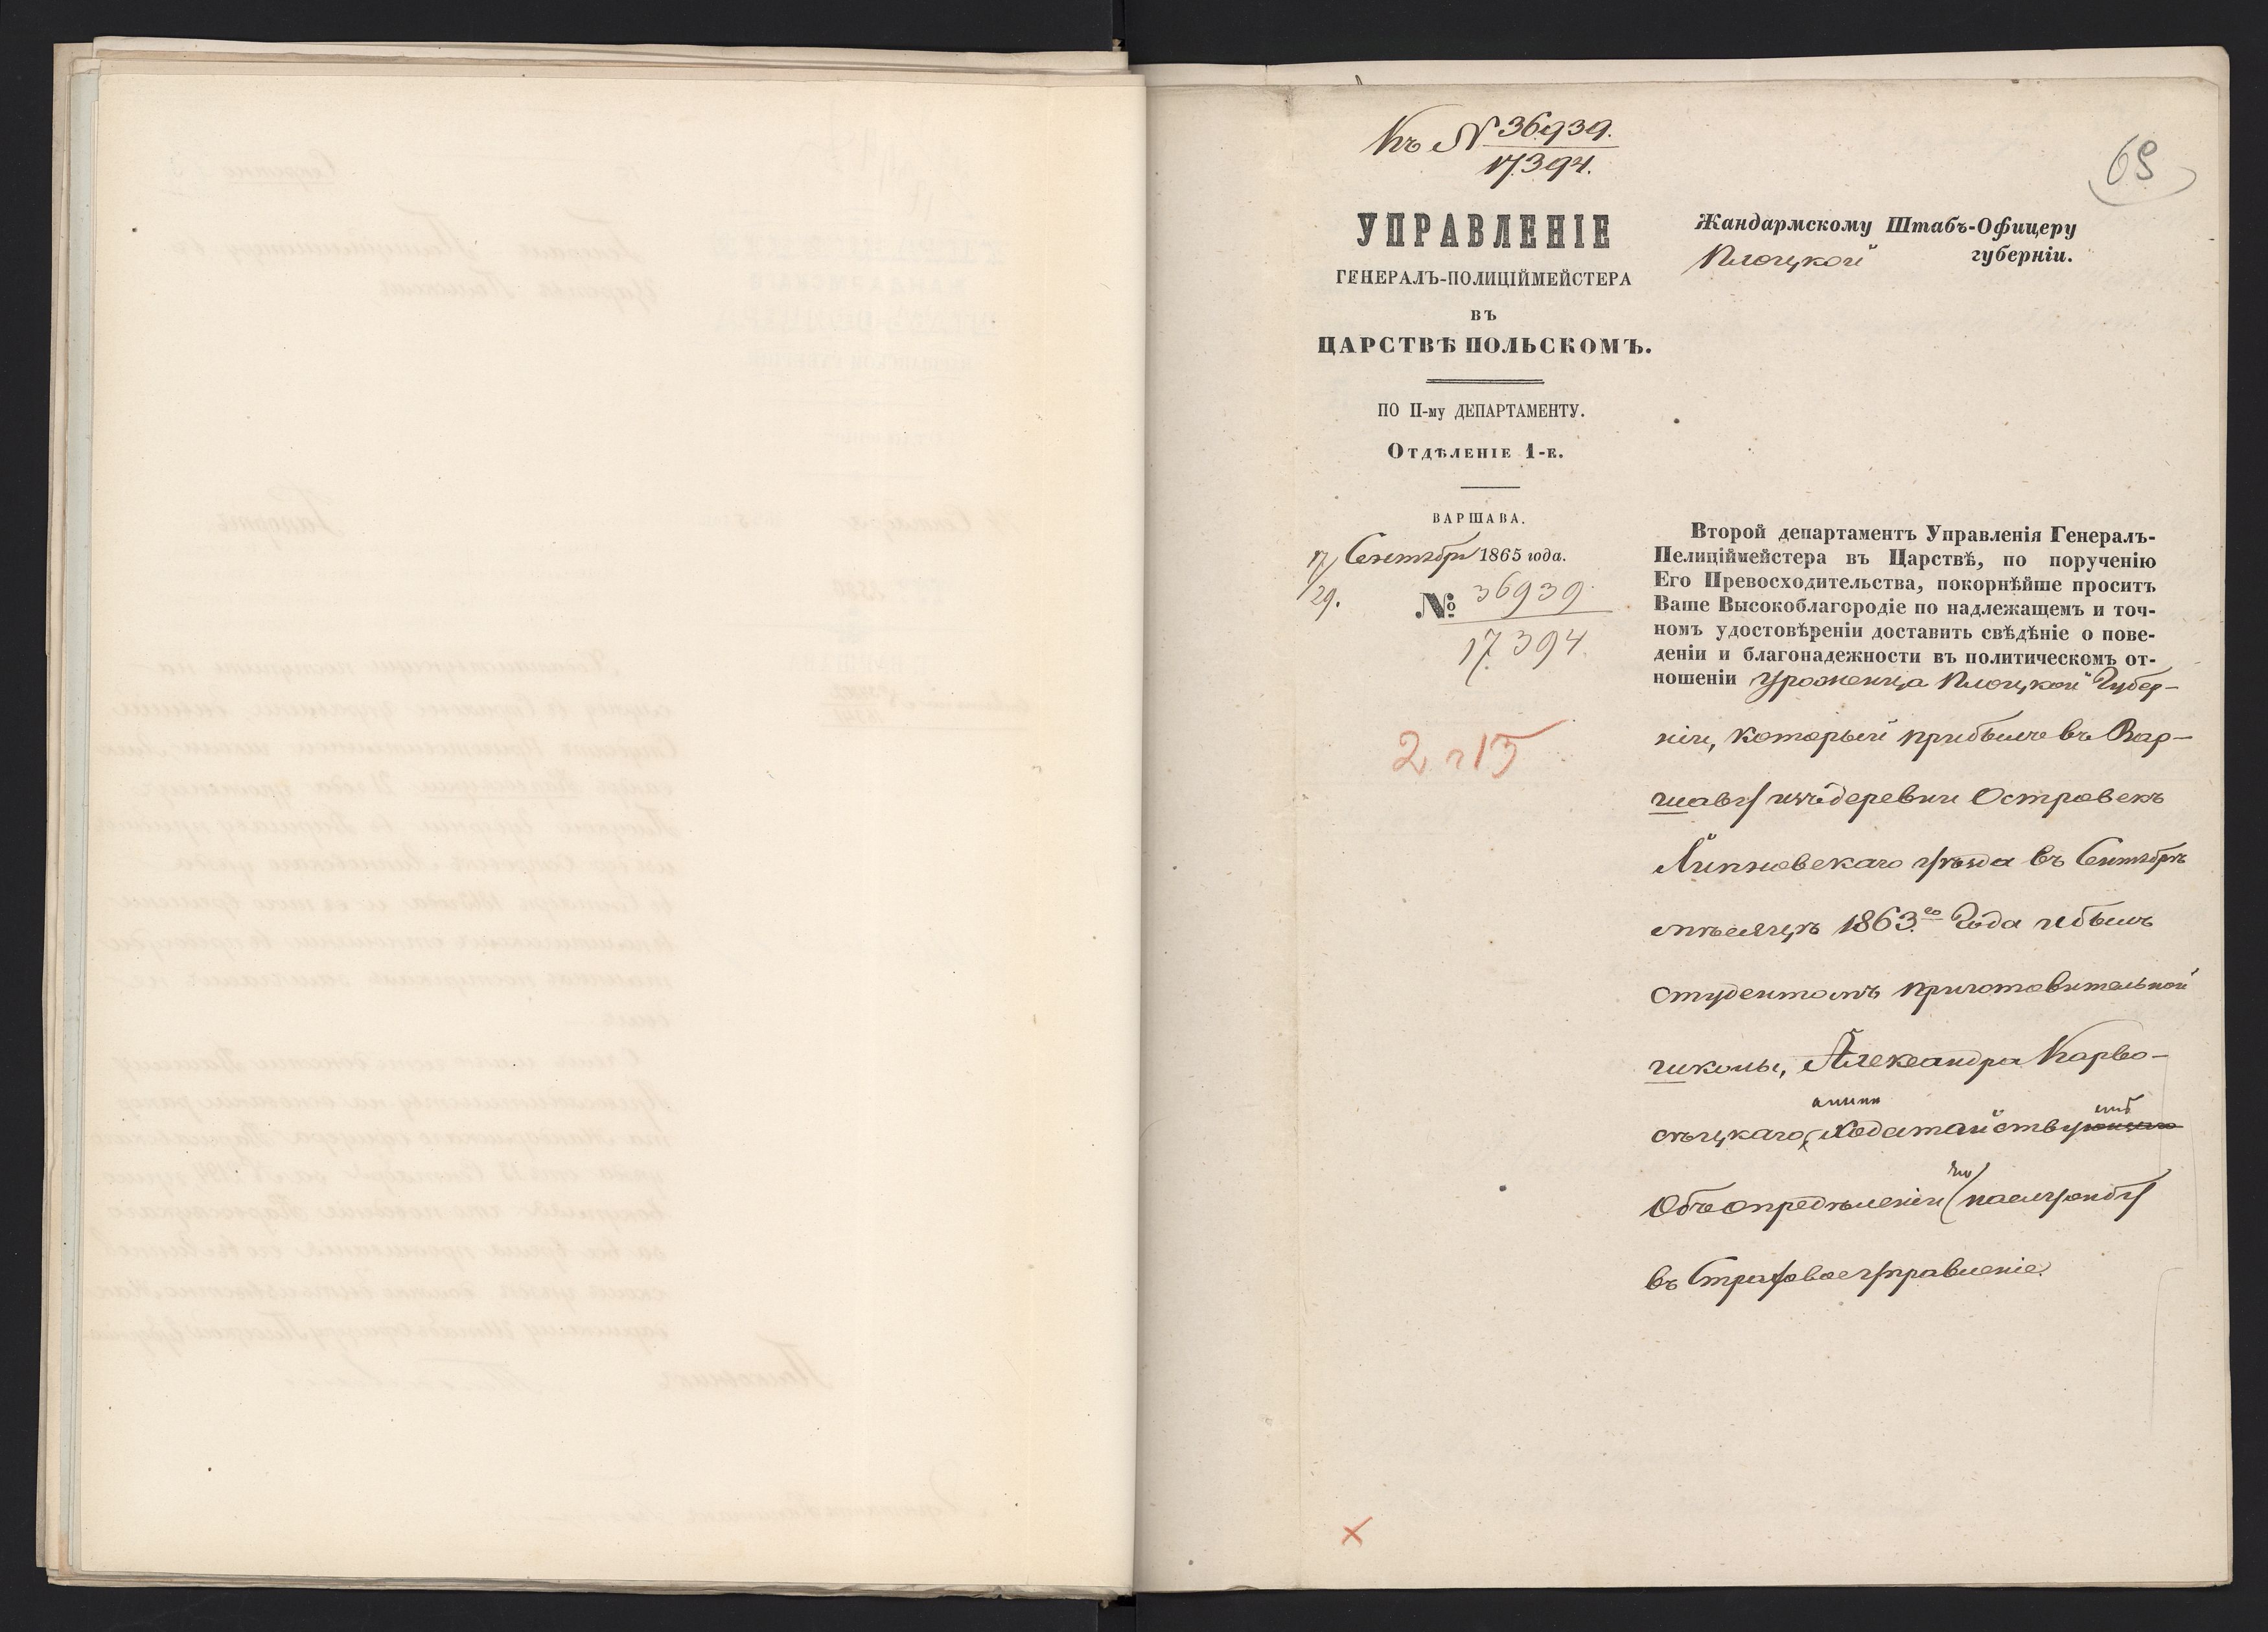 Къ № 36939.
17394.
69
УПРАВЛЕНІЕ
ГЕНЕРАЛЪ-ПОЛИЦІЙМЕЙСТЕРА
ВЪ
ЦАРСТВѢ ПОЛЬСКОМЪ.
ПО II-му ДЕПАРТАМЕНТУ.
Отдѣленіе 1-е.
ВАРШАВА.
17/29. Сентября 1865 года.
№ 36939
17394.
2 ч 15
Жандармскому Штабъ-Офицеру
Плоцкой губерніи.
Второй департаментъ Управленія Генералъ-
Пелиціймейстера въ Царствѣ, по порученію
Его Превосходительства, покорнѣйше проситъ
Ваше Высокоблагородіе по надлежащемъ и точ-
номъ удостовѣреніи доставить свѣдѣніе о пове-
деніи и благонадежности въ политическомъ от-
ношеніи Уроженца Плоцкой Губер-
ніи, который прибылъ въ Вар-
шаву изъ деревни Островекъ
Липновскаго уѣзда въ Сентябрѣ
мѣсяцѣ 1863.го Года и былъ
студентомъ приготовительной
школы, Александра Карво-
сѣцкаго, Ходатайствую
Объ опредѣленіи на службу
въ Страховое управленіе.